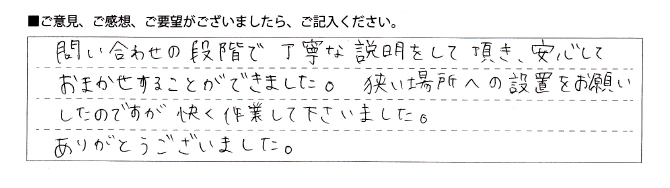 ■ご意見、ご感想、ご要望がございましたら、ご記入ください。
問い合わせの段階で丁寧な説明をして頂き、安心して
おまかせすることができました。狭い場所への設置をお願い
したのですが快く作業して下さいました。
ありがとうございました。